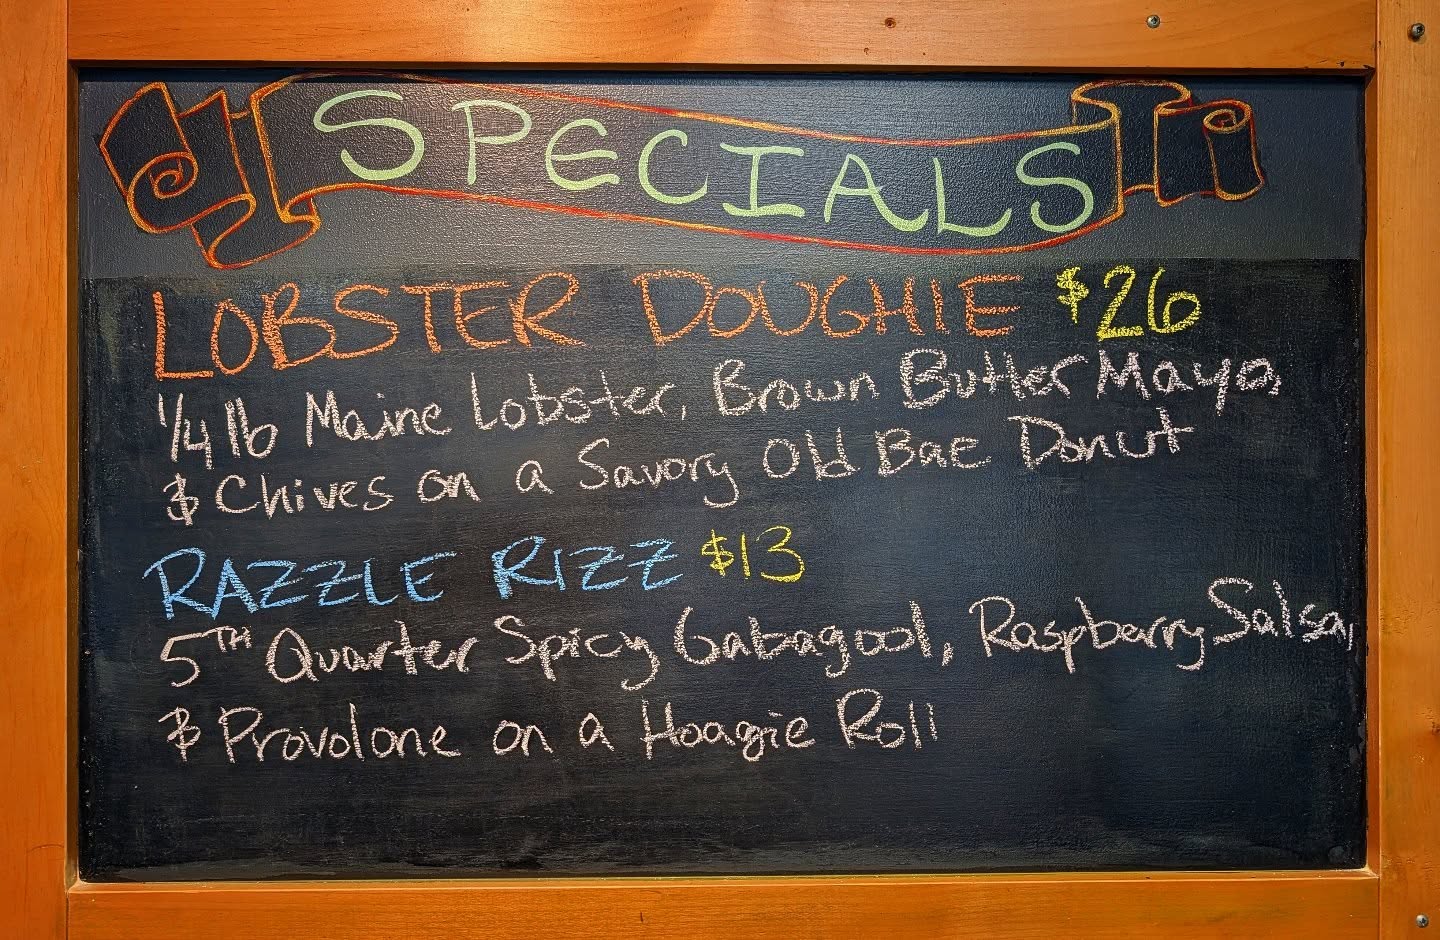 SPECIALS
LOBSTER DOUGHIE $26
1/4 lb Maine Lobster, Brown Butter Mayo,
& Chives on a Savory Old Bae Donut
RAZZLE RIZZ $13
5TH Quarter Spicy Gabagool, Raspberry Salsa,
& Provolone on a Hoagie Roll